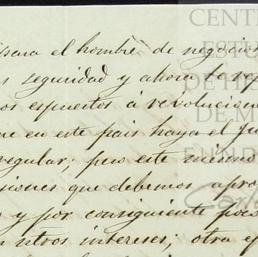 para el hombre de negocios
s seguridad y ahora te re
os espuestos á revolucion
ue en este pais haya el
regular; pero este mismo
siones que debemos apro
s y por consiguiente poco
n otros intereses; otra
CENT
ESTU
DE HIS
DE M
FUND
Carlo